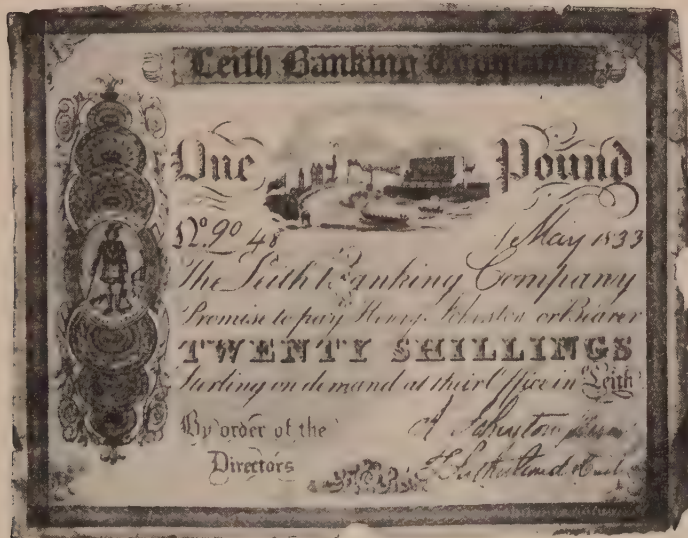 Leith Banking Company
One Pound
No. 90 48 1 May 1833
The Leith Banking Company
Promise to pay Henry Johnston or Bearer
TWENTY SHILLINGS
Sterling on demand at their Office in Leith
By order of the
Directors
H Johnston
Sutherland